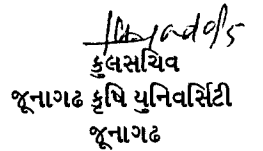 કુલસચિવ
જૂનાગઢ કૃષિ યુનિવર્સિટી
જૂનાગઢ